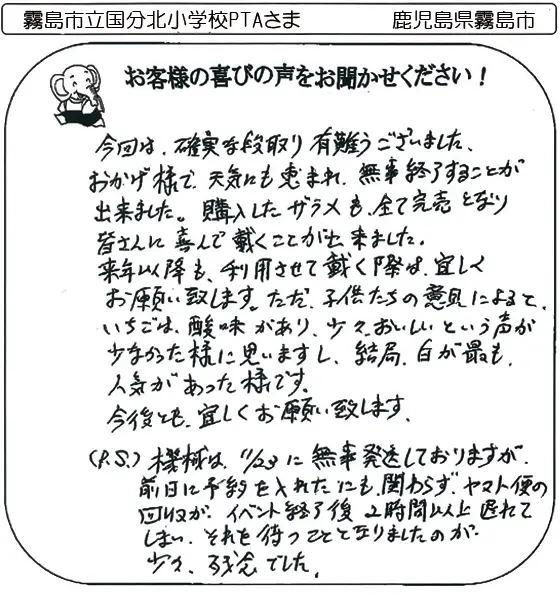 霧島市立国分北小学校PTAさま
鹿児島県霧島市
お客様の喜びの声をお聞かせください！
今回は、確実な段取り有難うございました、
おかげ様で、天気にも恵まれ、無事終了することが
出来ました。購入したザラメも、全て完売となり
皆さんに喜んで戴くことが出来ました。
来年以降も、利用させて戴く際は、宜しく
お願い致します。ただ、子供たちの意見によると、
いちごは、酸味があり、少々、おいしいという声が
少なかった様に思いますし、結局、白が最も、
人気があった様です。
今後とも、宜しくお願い致します、
(P.S.) 機械は、11/23に無事発送しておりますが、
前日に予約を入れたにも、関わらず、ヤマト便の
回収が、イベント終了後、2時間以上遅れて
しまい、それを待つことと なりましたのが、
少々、残念でした、